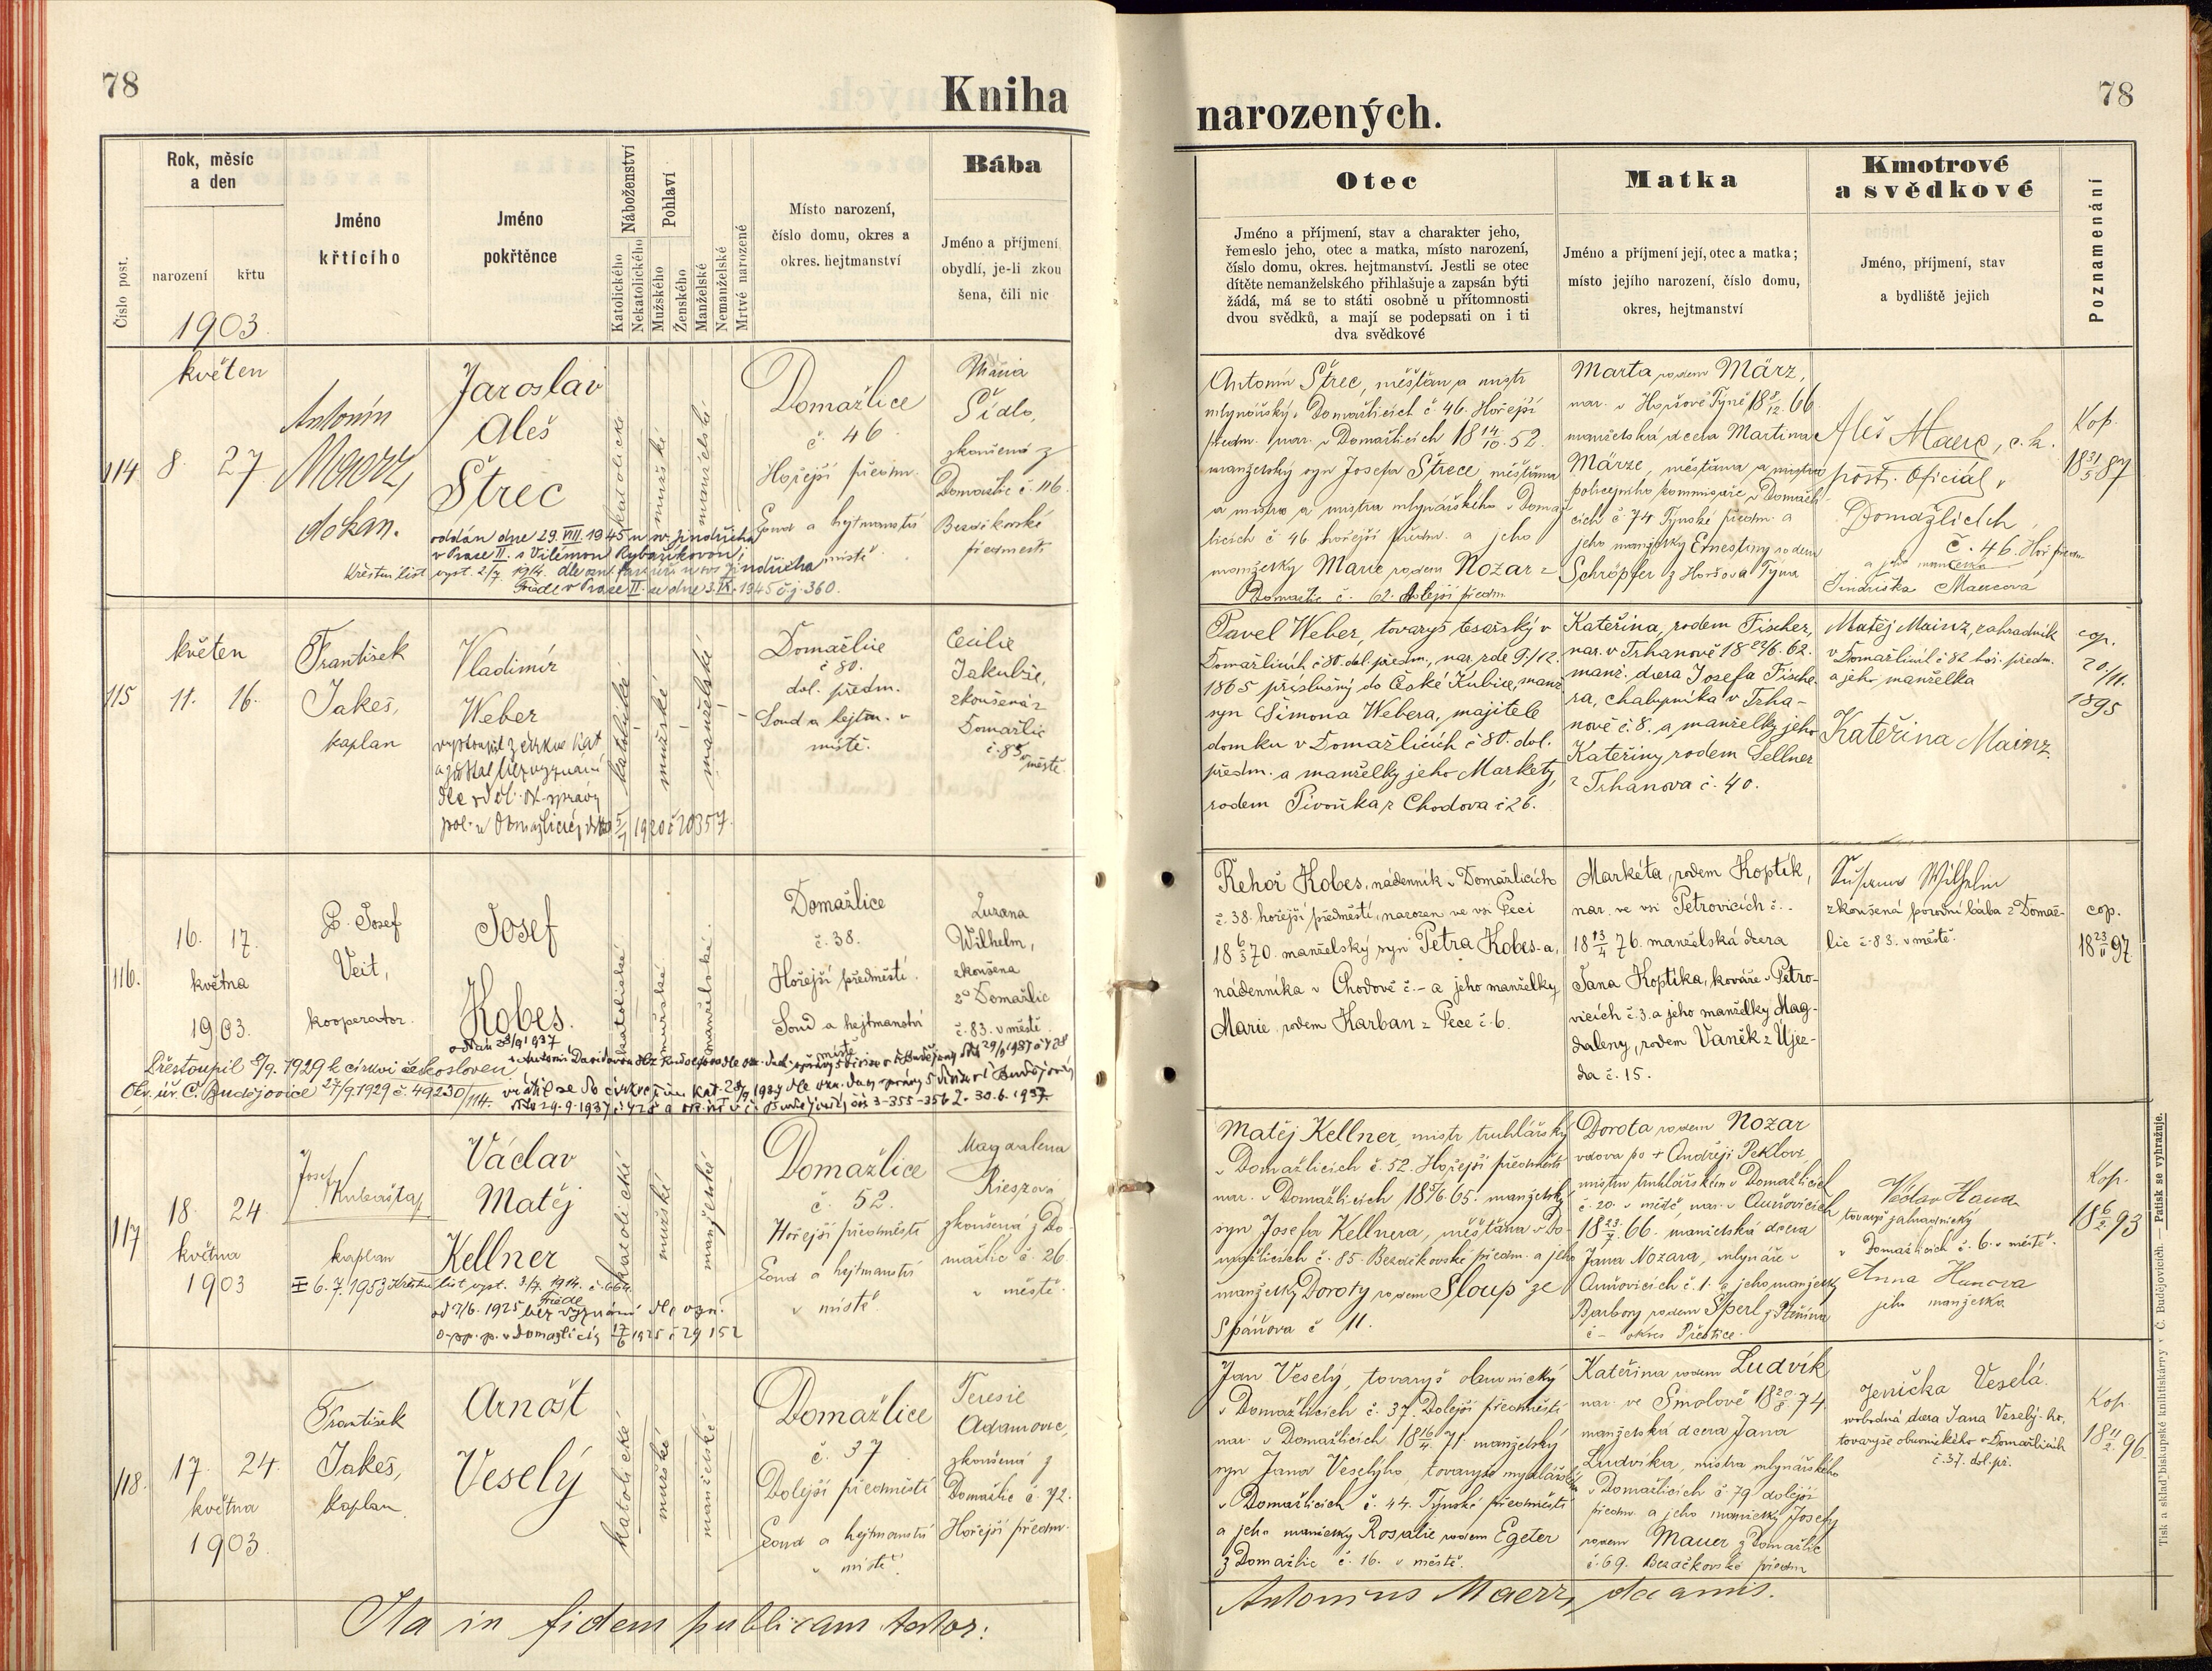 78
Kniha
Rok, měsíc
a den
narození
křtu
1903.
Číslo post.
Jméno
křtícího
Jméno
pokřtěnce
Náboženství
Katolického
Nekatolického
Pohlaví
Mužského
Ženského
Manželské
Nemanželské
Mrtvé narozené
Místo narození,
číslo domu, okres a
okres. hejtmanství
Bába
Jméno a příjmení
obydlí, je-li zkou
šena, čili nic
114
květen
8. 27
Antonín
Maerz,
děkan.
Jaroslav
Aleš
Štrec
katolické
mužské
manželské
Domažlice
č. 46
Hořejší předm.
Soud a hejtmanství
v místě
Maria
Sídlo,
zkoušená z
Domažlic č. 116.
Bezděkovské
předměstí
oddán dne 29. VIII. 1945 u sv. Jindřicha
v Praze II. s Vilémou Rybaříkovou
Křestní list vyst. 2/7 1914.
v Praze II. ze dne 3. IX. 1945 č.j. 360.
115
květen
11. 16.
František
Jakeš,
kaplan
Vladimír
Weber
vystoupil z církve kat.
a zůstal bez vyznání
dle
pol. v Domažlicích
5/7 1920 č 20357.
katolické
mužské
manželské
Domažlice
č 80.
dol. předm.
Soud a hejtm. v
místě.
Cecilie
Jakubše,
zkoušená z
Domažlic
č. 85 v
městě
116.
16. 17.
května
1903.
P. Josef
Veit,
kooperator.
Josef
Kobes.
katolické
mužské
manželské.
Domažlice
č. 38.
Hořejší předměstí.
Soud a hejtmanství
místě
Zuzana
Wilhelm,
zkoušena
z Domažlic
č. 83. v městě
Přestoupil 5/9. 1929 k církvi českosloven
Okr. úř. Č. Budějovice 27/9. 1929 č. 49230/114.
117
18. 24.
května
1903
Josef
Kubašta,
kaplan
Václav
Matěj
Kellner
katolické
mužské
manželské
Domažlice
č. 52.
Hořejší předměstí
Soud a hejtmanství
v místě.
Magdalena
Rieszová
zkoušená z Do-
mažlic č. 26.
v městě.
6. 7. 1953 Křestní list vyst. 3/7. 1914. č. 664.
Friede
od 7/6. 1925 bez vyznání dle ozn.
o. sp. p. v Domažlicích 17/6 1925 č 29152
118.
17. 24.
května
1903.
František
Jakeš,
kaplan
Arnošt
Veselý
katolické
mužské
manželské
Domažlice
č. 37
Dolejší předměstí
Soud a hejtmanství
v místě.
Teresie
Adamovic,
zkoušená z
Domažlic č. 72.
Hořejší předm.
Ita in fidem publicam testor:
narozených.
78
Otec
Jméno a příjmení, stav a charakter jeho,
řemeslo jeho, otec a matka, místo narození,
číslo domu, okres. hejtmanství. Jestli se otec
dítěte nemanželského přihlašuje a zapsán býti
žádá, má se to státi osobně u přítomnosti
dvou svědků, a mají se podepsati on i ti
dva svědkové
Matka
Jméno a příjmení její, otec a matka;
místo jejího narození, číslo domu,
okres, hejtmanství
Kmotrové
a svědkové
Jméno, příjmení, stav
a bydliště jejich
Poznamenání
Antonín Štrec, měšťan a mistr
mlynářský v Domažlicích č 46. Hořejší
předm. nar. v Domažlicích 18 14/10. 52.
manželský syn Josefa Štrece, měšťana
a mistra a mistra mlynářského v Domaž
licích č 46 hořejší předm. a jeho
manželky Marie rodem Nozar z
Domažlic č. 62. dolejší předm.
Marta rodem März,
nar. v Horšově Týně 18 8/12. 66
manželská dcera Martina
Märze, měšťana a mistra
policejního kommisaře v Domažli-
cích č 74 Týnské předm. a
jeho manželky Ernestiny rodem
Schröpfer z Horšova Týna
Aleš Maerz, c. k.
pošt. Oficiál v
Domažlicích,
č. 46. Hoř předm
a jeho manželka
Jindřiška Maerzová
Kop.
18 31/5 87
Pavel Weber, tovaryš tesařský v
Domažlicích č 80. dol. předm., nar. zde 9./12.
1865 příslušný do České Kubice, manž
syn Šimona Webera, majitele
domku v Domažlicích č 80. dol.
předm. a manželky jeho Markéty,
rodem Pivoňka z Chodova č 26.
Kateřina, rodem Fischer,
nar. v Trhanově 18 29/6. 62.
manž. dcera Josefa Fische-
ra, chalupníka v Trha-
nově č. 8. a manželky jeho
Kateřiny rodem Sellner
z Trhanova č. 40.
Matěj Mainz, zahradník
v Domažlicích č 82 hoř. předm.
a jeho manželka
Kateřina Mainz.
cop.
20./11.
1895
Řehoř Kobes, nádenník v Domažlicích
č. 38. hořejší předměstí, narozen ve vsi Peci
18 6/3 70. manželský syn Petra Kobes-a,
nádenníka v Chodově č. – a jeho manželky
Marie, rodem Karban z Pece č. 6.
Markéta, rodem Koptík,
nar. ve vsi Petrovicích č. –
18 13/4 76. manželská dcera
Jana Koptíka, kováře v Petro-
vicích č. 3. a jeho manželky Mag-
daleny, rodem Vaněk z Újez-
da č. 15.
Wilhelm
zkoušená porodní bába z Domaž-
lic č. 83. v městě.
cop.
18 23/11 97.
Matěj Kellner, mistr truhlářský
v Domažlicích č. 52. Hořejší předměstí
nar. v Domažlicích 18 5/6. 65. manželský
syn Josefa Kellnera, měšťana v Do-
mažlicích č. 85. Bezděkovské předm. a jeho
manželky Doroty rodem Sloup ze
Spáňova č 11.
Dorota rodem Nozar
vdova po + Ondřeji Peklovi,
mistru truhlářském v Domažlicích
č. 20. v městě, nar. v Ouňovicích
18 23/7. 66. manželská dcera
Jana Nozara, mlynáře v
Ouňovicích č. 1. a jeho manželky
Barbory rodem Šperl z
č – okres Přeštice.
Václav Hana
tovaryš
v Domažlicích č. 6. v městě.
Anna Hanova
jeho manželka
Kop.
18 6/2. 93
Jan Veselý, tovaryš obuvnický
v Domažlicích č. 37. Dolejší předměstí
nar. v Domažlicích 18 16/4. 71. manželský
syn Jana Veselýho, tovaryše mydlářského
v Domažlicích č. 44. Týnské předměstí
a jeho manželky Rosalie rodem Egeter
z Domažlic č. 16. v městě.
Kateřina rodem Ludvík
nar. ve Smolově 18 20/8. 74.
manželská dcera Jana
Ludvíka, mistra mlynářského
v Domažlicích č 79 dolejší
předm. a jeho manželky Josefy
rodem Mauer z Domažlic
č. 69. Bezděkovské předm
Jenička Veselá.
svobodná dcera Jana Veselý-ho,
tovaryše obuvnického v Domažlicích
č. 37. dol. př.
Kop.
18 11/2. 96.
Antonius Maerz, decanus.
Tisk a sklad biskupské knihtiskárny v Č. Budějovicích. — Patisk se vyhražuje.